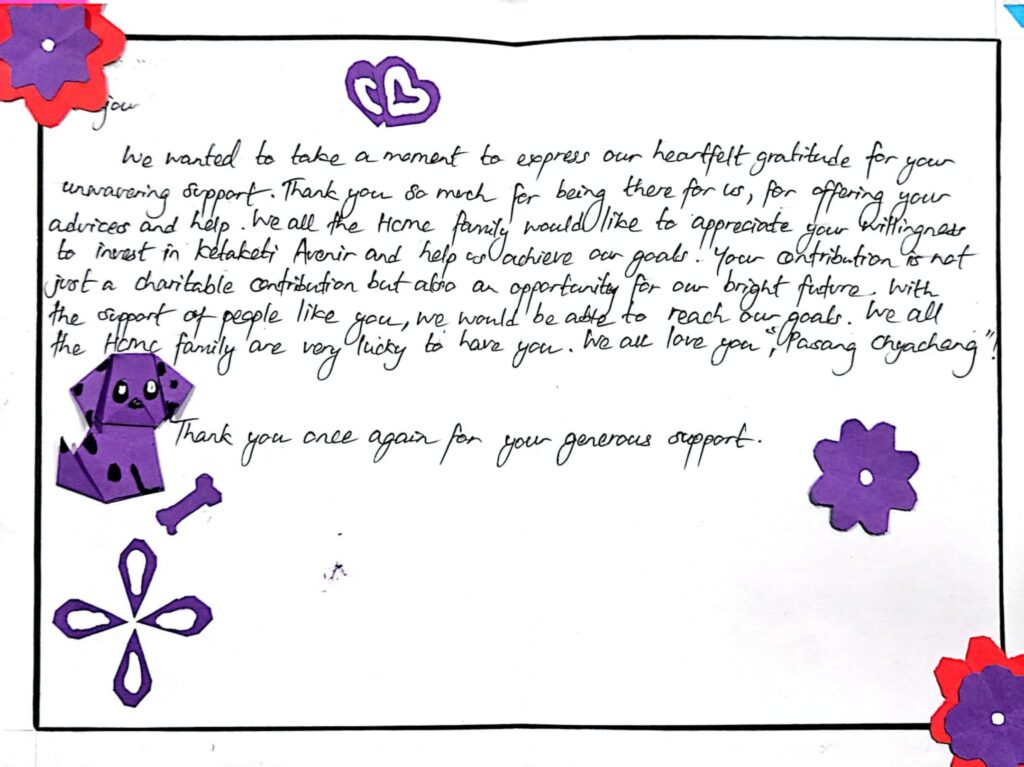 jour
We wanted to take a moment to express our heartfelt gratitude for your
unwavering support. Thank you so much for being there for us, for offering your
advices and help. We all the Home family would like to appreciate your willingness
to invest in Ketaketi Avenir and help us achieve our goals. Your contribution is not
just a charitable contribution but also an opportunity for our bright future. With
the support of people like you, we would be able to reach our goals. We all
the Home family are very lucky to have you. We all love you, "Pasang Chyachang"!
Thank you once again for your generous support.